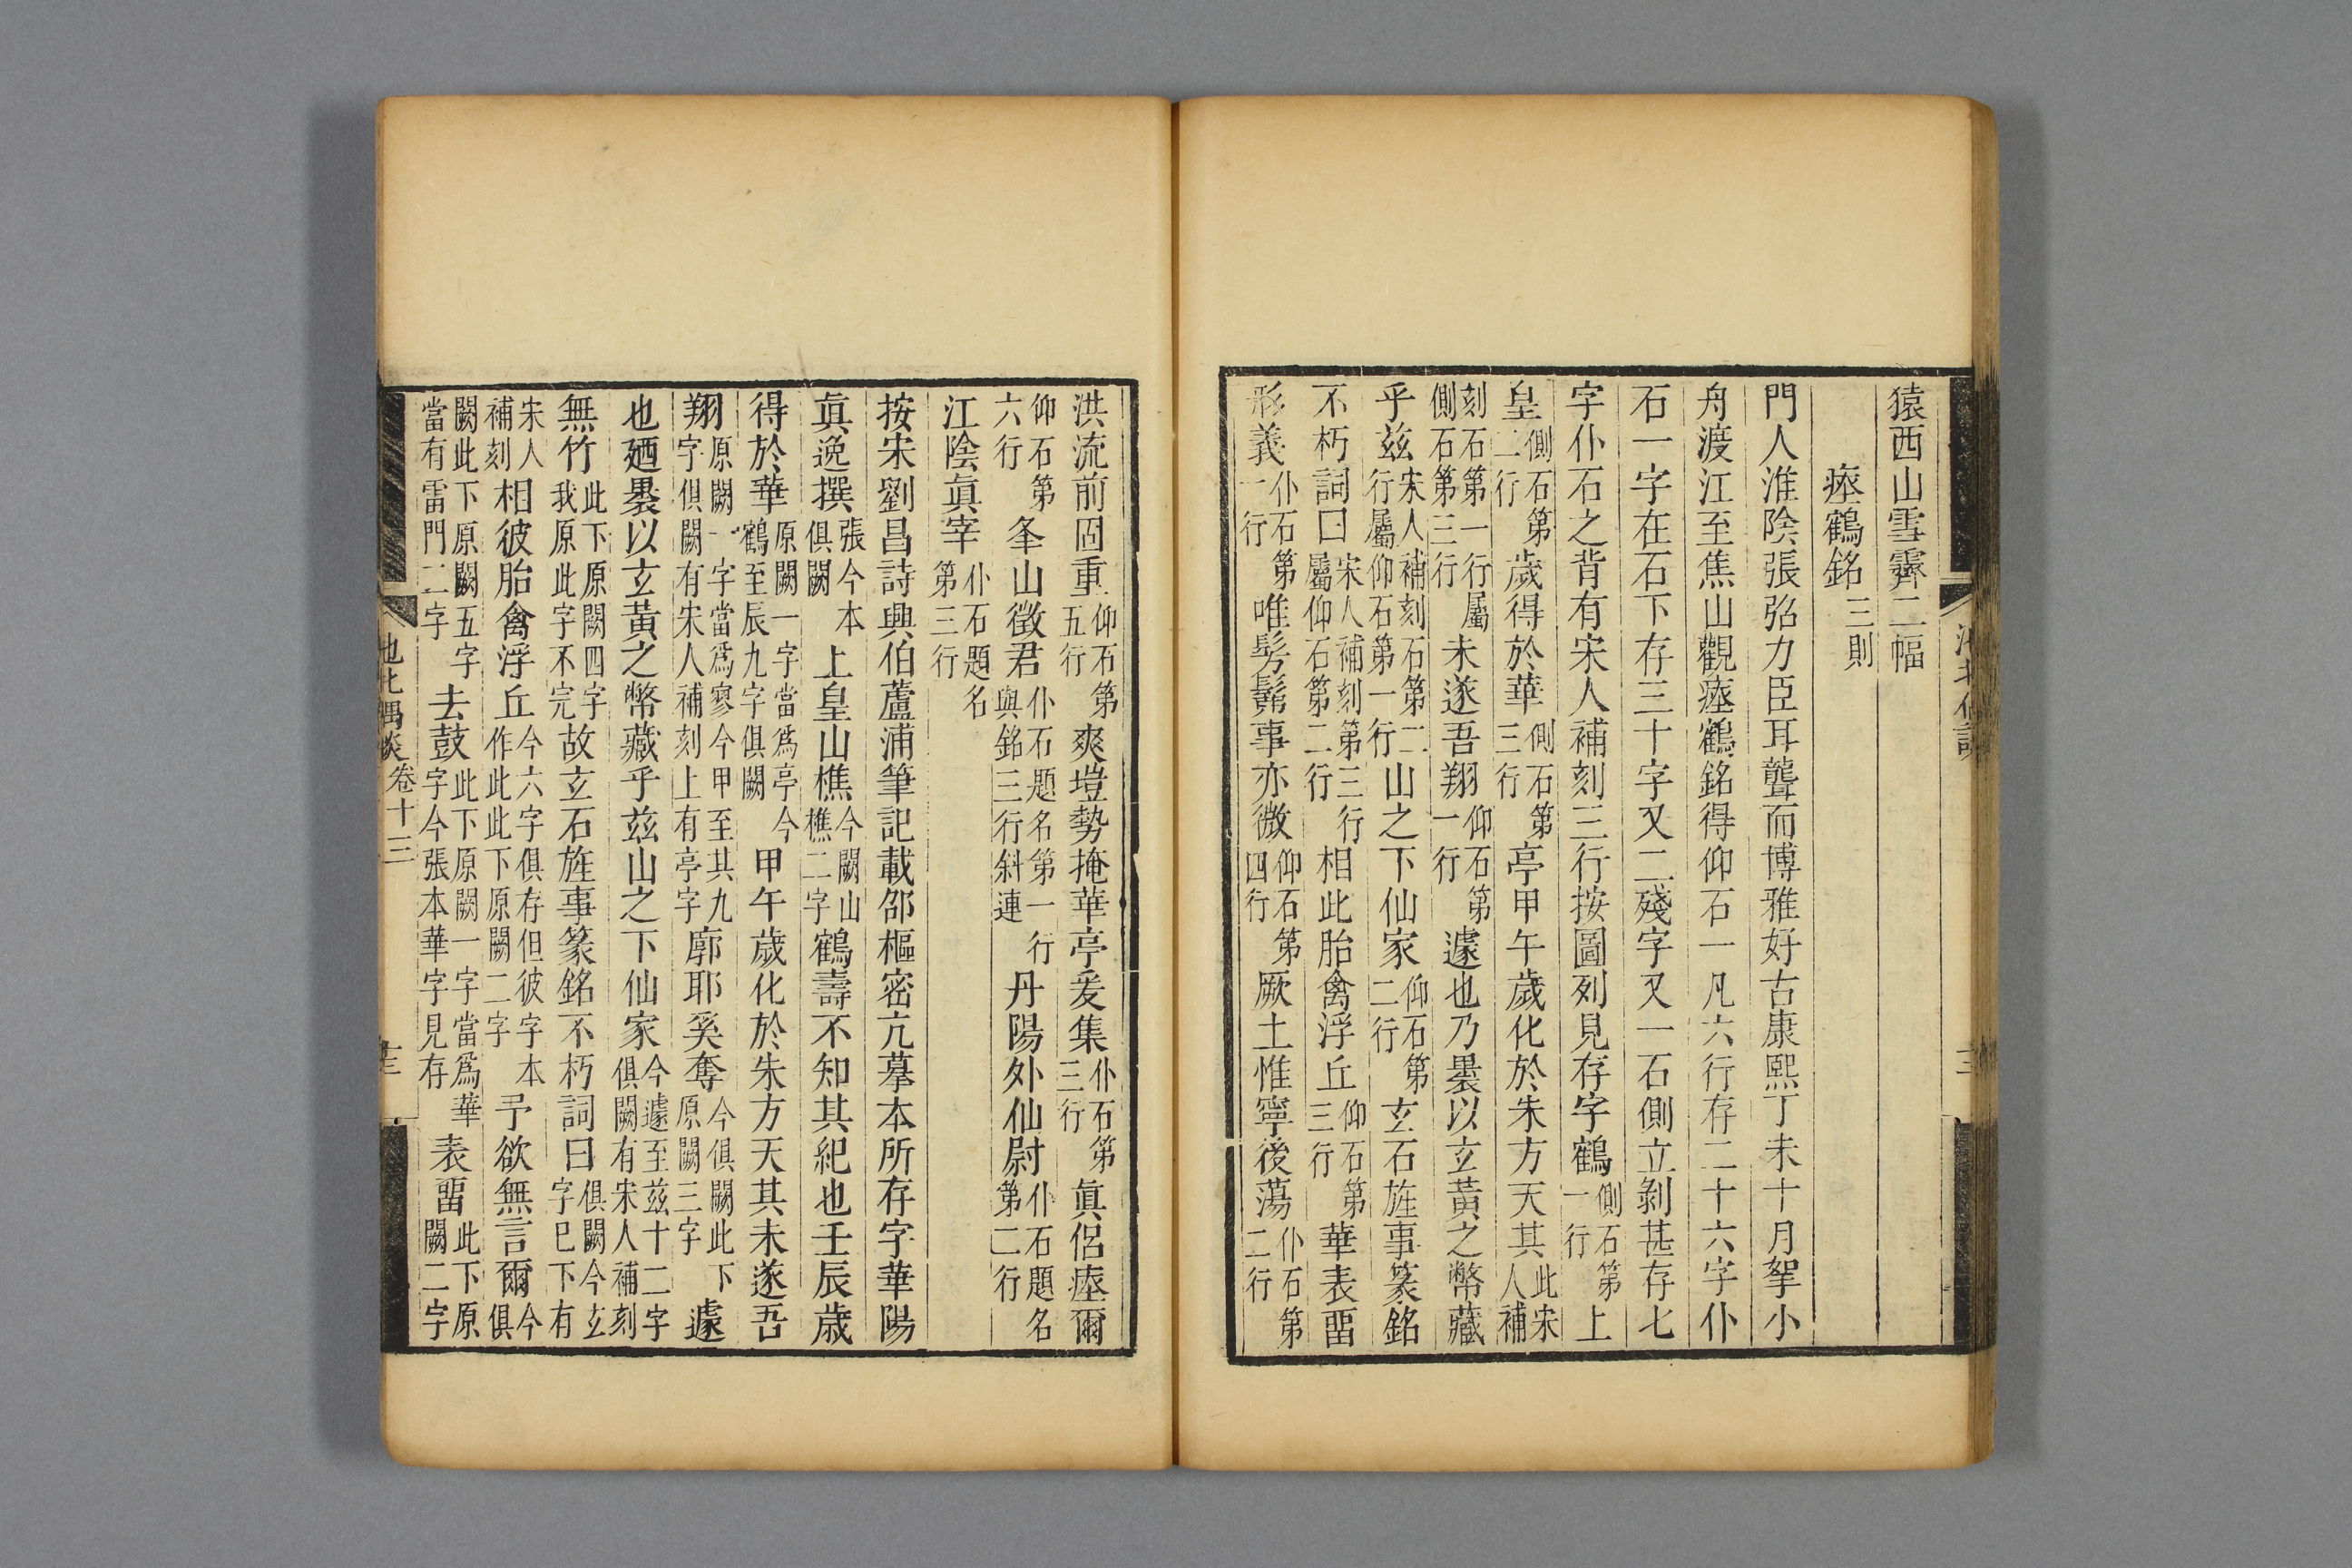 猿西山雪霽二幅
瘞鶴銘三則
門人淮陰張弨力臣耳聾而博雅好古康熙丁未十月挐小
舟渡江至焦山觀瘞鶴銘得仰石一凡六行存二十六字仆
石一字在石下存三十字又二殘字又一石側立剝甚存七
字仆石之背有宋人補刻三行按圖列見存字鶴側石第一行上
皇側石第二行歲得於華側石第三行亭甲午歲化於朱方天其此宋人補
刻石第一行屬側石第三行未遂吾翔仰石第一行遽也乃裹以玄黃之幣藏
乎玆宋人補刻石第二行屬仰石第一行山之下仙家仰石第二行玄石旌事篆銘
不朽詞曰宋人補刻第三行屬仰石第二行相此胎禽浮丘仰石第三行華表畱
形義仆石第一行唯髣髴事亦微仰石第四行厥土惟寧後蕩仆石第二行
洪流前固重仰石第五行爽塏勢掩華亭爰集仆石第三行眞侶瘞爾
仰石第六行夆山徵君仆石題名第一行與銘三行斜連丹陽外仙尉仆石題名第二行
江陰眞宰仆石題名第三行
按宋劉昌詩興伯蘆浦筆記載邵樞密亢摹本所存字華陽
眞逸撰張今本俱闕上皇山樵今闕山樵二字鶴壽不知其紀也壬辰歲
得於華原闕一字當爲亭今鶴至辰九字俱闕甲午歲化於朱方天其未遂吾
翔原闕一字當爲寥今甲至其九字俱闕有宋人補刻上有亭字廓耶奚奪今俱闕此下原闕三字遽
也廼裹以玄黃之幣藏乎玆山之下仙家今遽至玆十二字俱闕有宋人補刻
無竹此下原闕四字我原此字不完故玄石旌事篆銘不朽詞曰俱闕今玄字巳下有
宋人補刻相彼胎禽浮丘今六字俱存但彼字本作此此下原闕二字予欲無言爾今俱
闕此下原闕五字當有雷門二字去鼓此下原闕一字當爲華字今張本華字見存表畱此下原闕二字
池北偶談卷十三